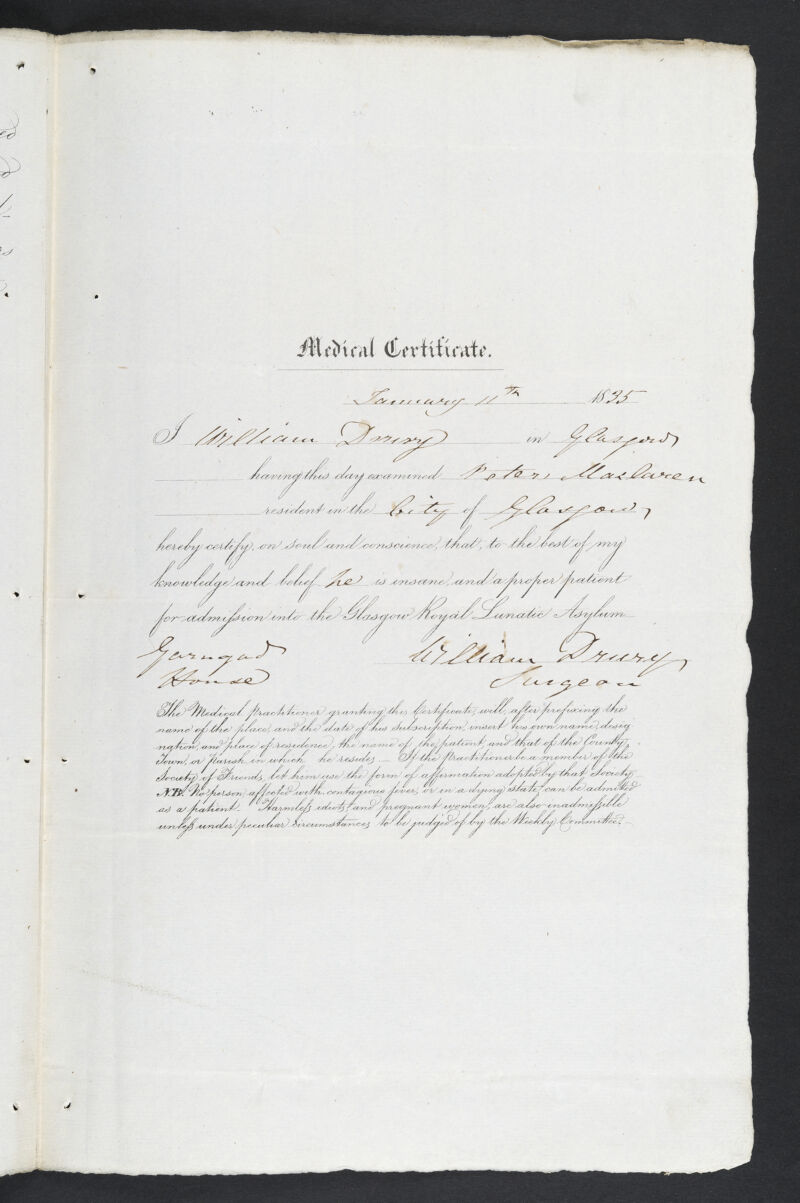 Medical Certificate.
January 11th 1835
I William Drury in Glasgow
having this day examined Peter MacLaren
resident in the City of Glasgow,
hereby certify, on soul and conscience, that, to the best of my
knowledge and belief he is insane, and a proper patient
for admission into the Glasgow Royal Lunatic Asylum
Garngad
House
William Drury,
Surgeon
The Medical Practitioner granting this Certificate, will, after prefixing the
name of the place, and the date of his subscription, insert his own name, desig
nation, and place of residence, the name of the patient, and that of the County,
Town, or Parish in which he resides – If the practitioner be a member of the
Society of Friends, let him use the form of affirmation adopted by that Society
NB No person affected with contagious fever, or in a dying state, can be admitted
as a patient. Harmless idiots, and pregnant women, are also inadmissible
unless under peculiar circumstances, to be judged of by the Weekly Committee.